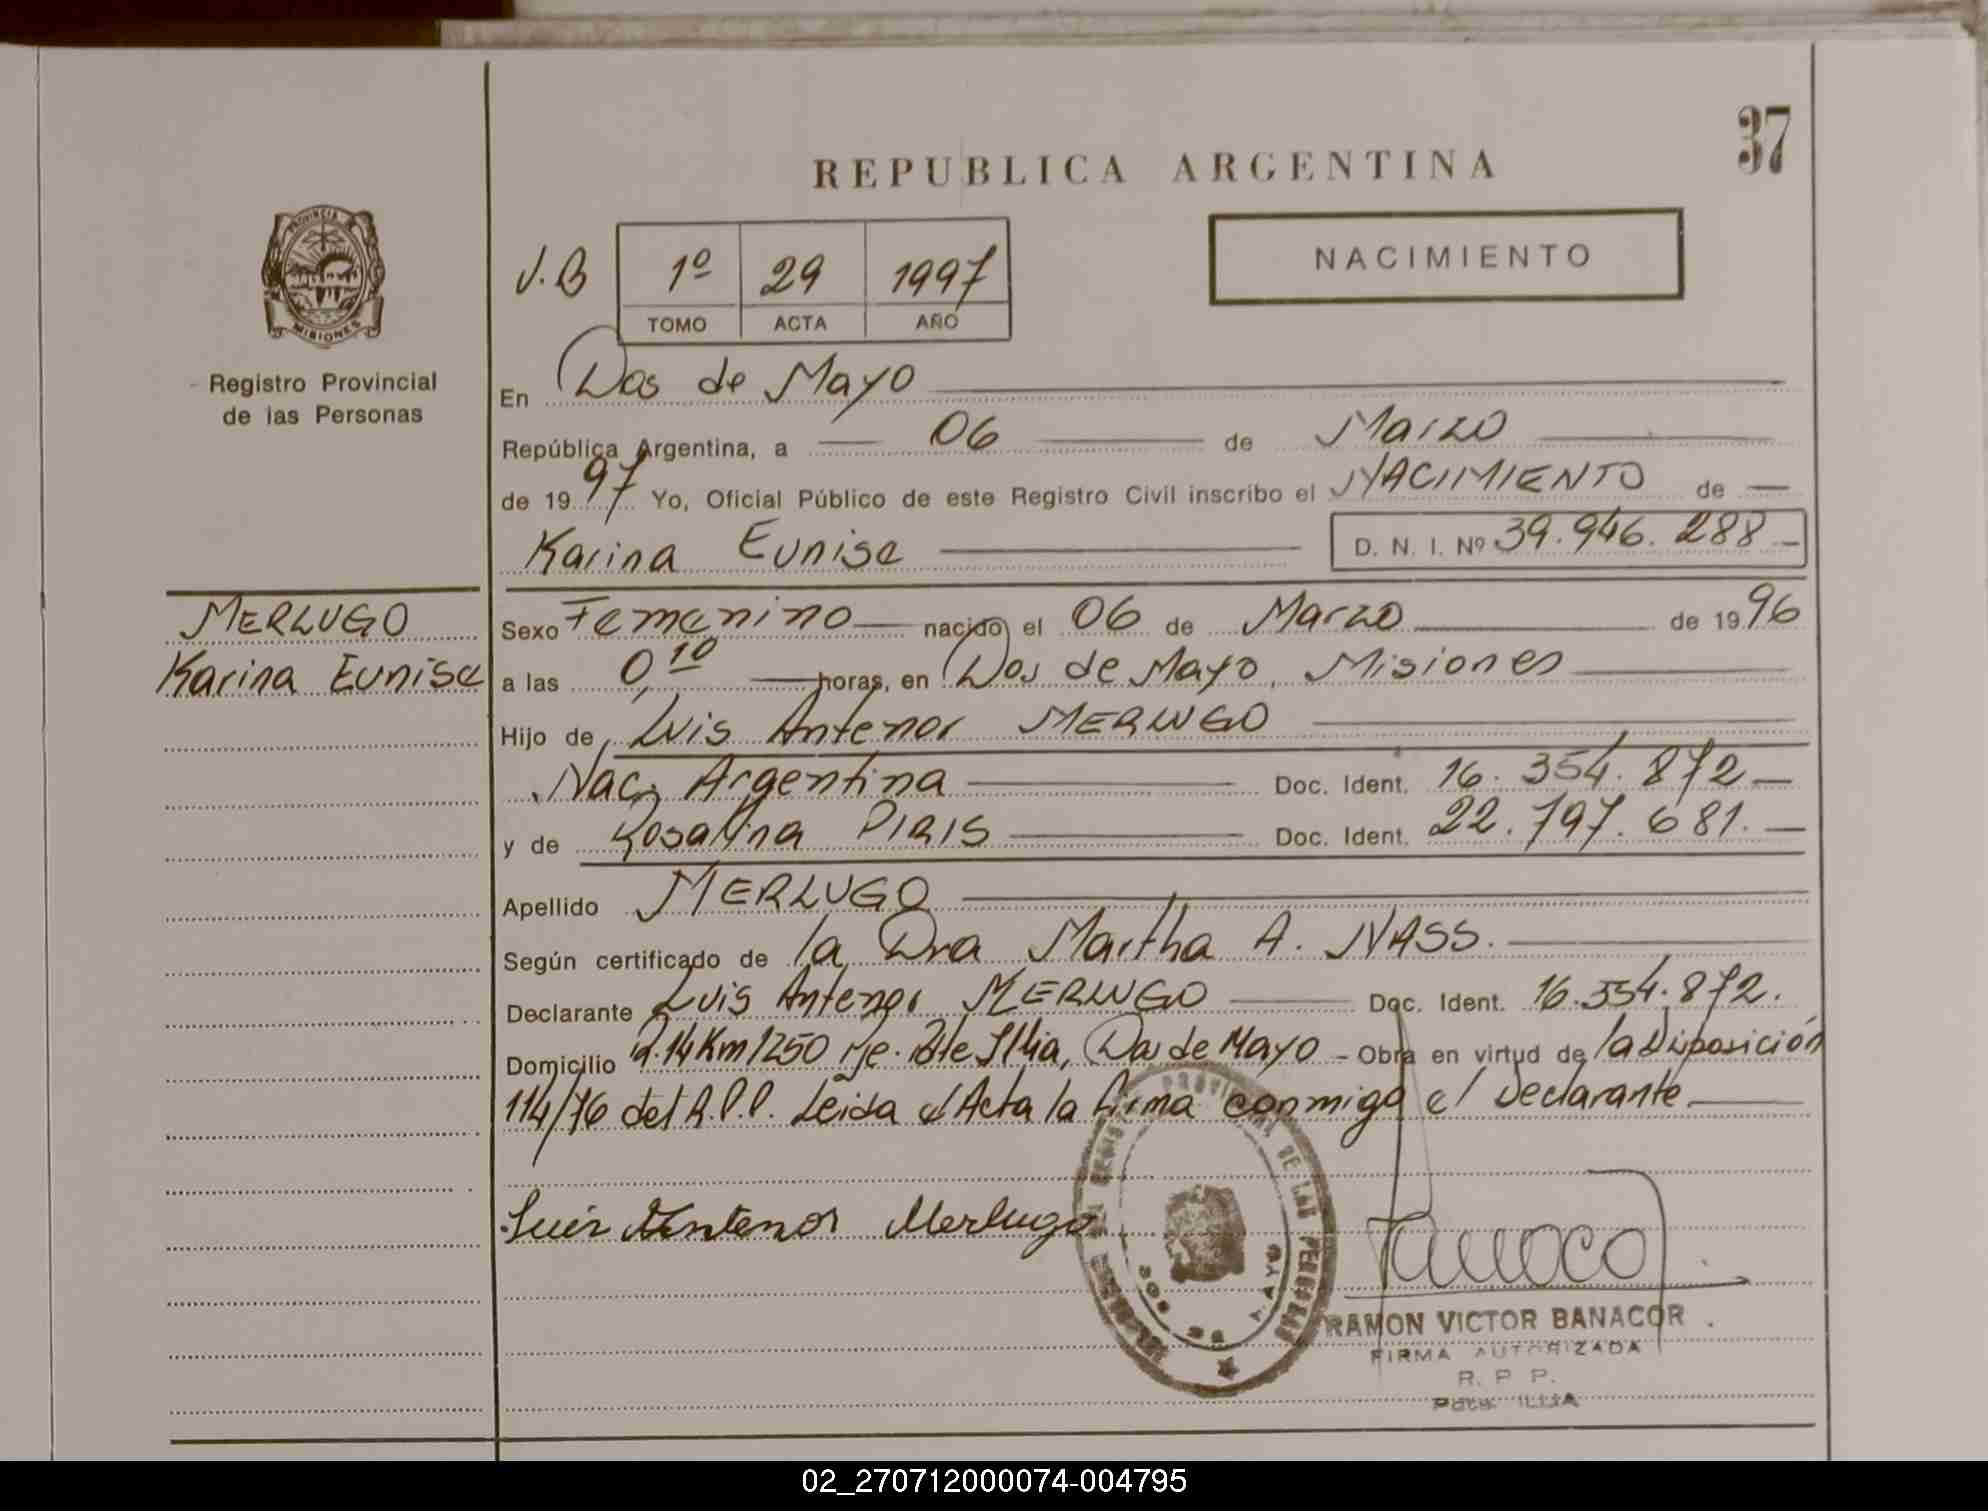 37
REPUBLICA ARGENTINA
PROVINCIA
MISIONES
Registro Provincial
de las Personas
J.B
1º 29 1997
TOMO ACTA AÑO
NACIMIENTO
En Dos de Mayo
República Argentina, a 06 de Marzo
de 1997 Yo, Oficial Público de este Registro Civil inscribo el NACIMIENTO de
Karina Eunise D. N. I. Nº 39.946.288
MERLUGO
Karina Eunise
Sexo Femenino nacido el 06 de Marzo de 1996
a las 0 10 horas, en Dos de Mayo, Misiones
Hijo de Luis Antenor MERLUGO
Nac. Argentina Doc. Ident. 16.354.872
y de Rosalina PIRIS Doc. Ident. 22.797.681.
Apellido MERLUGO
Según certificado de la Dra Martha A. NASS.
Declarante Luis Antenor MERLUGO Doc. Ident. 16.354.872.
Domicilio 14 Km 1250 Pte Illia, Dos de Mayo - Obra en virtud de la Disposición
114/76 del R.P.P. Leida el Acta la firma conmigo el Declarante
Luis Antenor Merlugo
PROVINCIAL DE LAS PERSONAS
DOS DE MAYO
RAMON VICTOR BANACOR
FIRMA AUTORIZADA
R. P. P.
Pdte. ILLIA
02_270712000074-004795